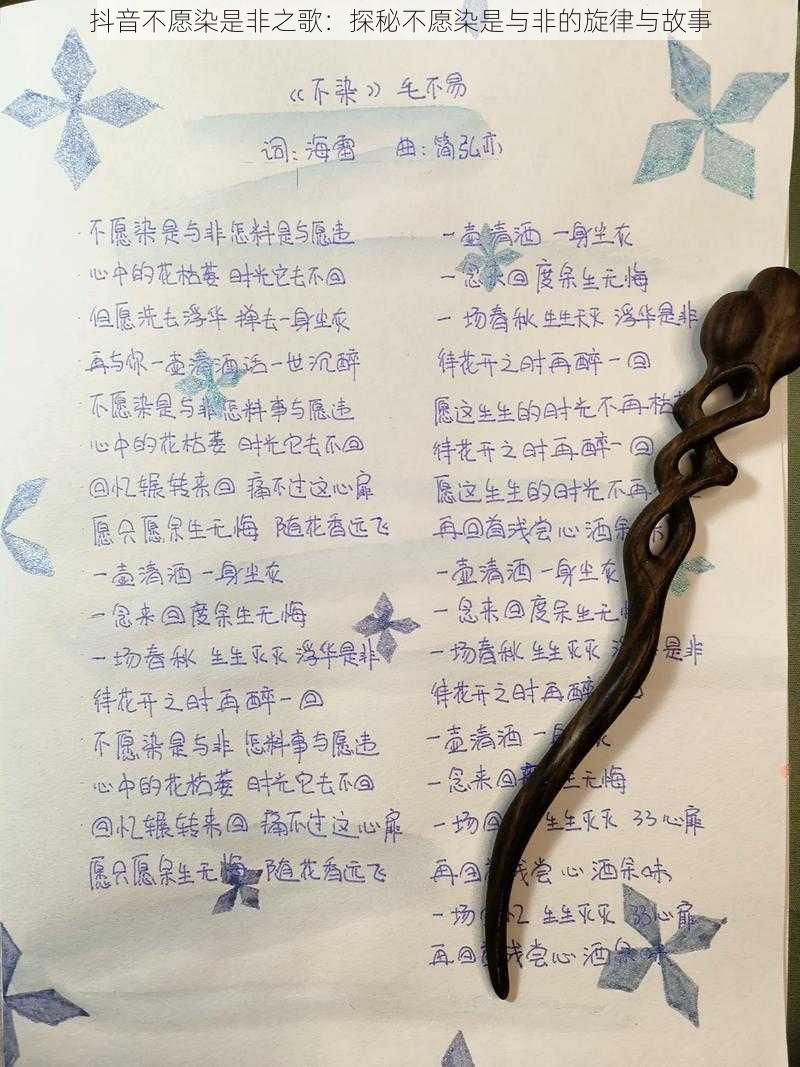 抖音不愿染是非之歌：探秘不愿染是与非的旋律与故事
《不染》毛不易
词：海雷 曲：简弘亦
不愿染是与非怎料是与愿违
心中的花枯萎 时光它去不回
但愿洗去浮华 掸去一身尘衣
再与你一壶清酒话一世沉醉
不愿染是与非怎料事与愿违
心中的花枯萎 时光它去不回
回忆辗转来回 痛不过这心扉
愿只愿余生无悔 随花香远飞
一壶清酒 一身尘衣
一念来回度余生无悔
一场春秋 生生灭灭 浮华是非
待花开之时再醉一回
不愿染是与非 怎料事与愿违
心中的花枯萎 时光它去不回
回忆辗转来回 痛不过这心扉
愿只愿余生无悔 随花香远飞
一壶清酒 一身尘衣
一念来回度余生无悔
一场春秋生生灭灭 浮华是非
待花开之时再醉一回
愿这生生的时光不再枯
待花开之时再醉一回
愿这生生的时光不再
再回首浅尝心酒余味
一壶清酒 一身尘衣
一念来回度余生无
一场春秋 生生灭灭 是非
待花开之时再醉
一壶清酒 一身
一念来回 生无悔
一场回 生生灭灭 33心扉
再回首浅尝心酒余味
一场 忆 生生灭灭 33心扉
再回 浅尝心酒余味